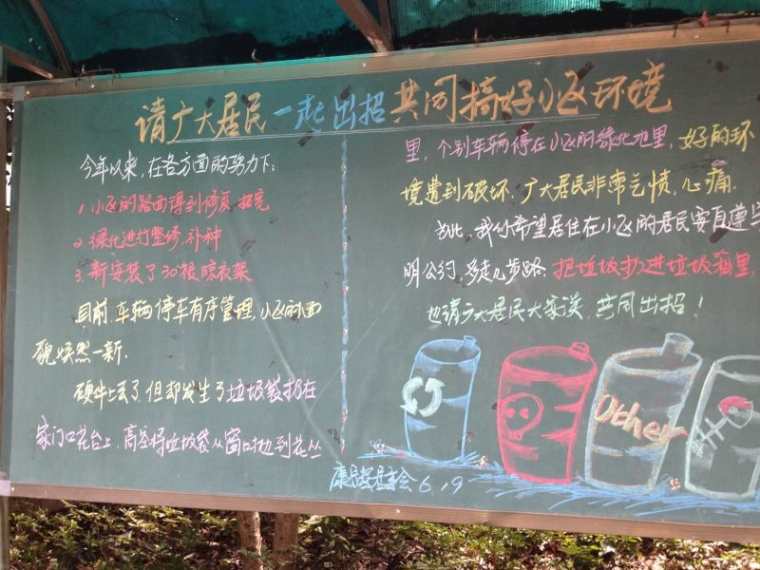 请广大居民一起出招共同搞好小区环境
今年以来,在各方面的努力下:
1.小区的路面得到修复,拓宽
2.绿化进行整修,补种
3.新安装了30根晾衣架
目前,车辆停车有序管理,小区的面
貌焕然一新.
硬件上去了,但却发生了垃圾袋扔在
家门口花台上,高层将垃圾袋从窗口抛到花丛
里,个别车辆停在小区的绿化地里,好的环
境遭到破坏,广大居民非常气愤,心痛.
为此,我们希望居住在小区的居民要自遵守
明公约,多走几步路,把垃圾扔进垃圾箱里,
也请广大居民大家谈,共同出招!
Other
居委会 6.19